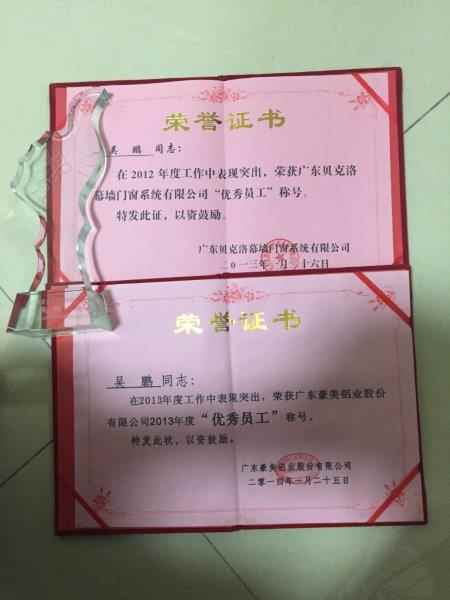 荣誉证书
吴 鹏 同志：
在2012年度工作中表现突出，荣获广东贝克洛
幕墙门窗系统有限公司“优秀员工”称号。
特发此证，以资鼓励。
广东贝克洛幕墙门窗系统有限公司
二〇一三年 月 十六日
荣誉证书
吴 鹏 同志：
在2013年度工作中表现突出，荣获广东豪美铝业股份
有限公司2013年度“优秀员工”称号，
特发此状，以资鼓励。
广东豪美铝业股份有限公司
二零一四年一月二十五日